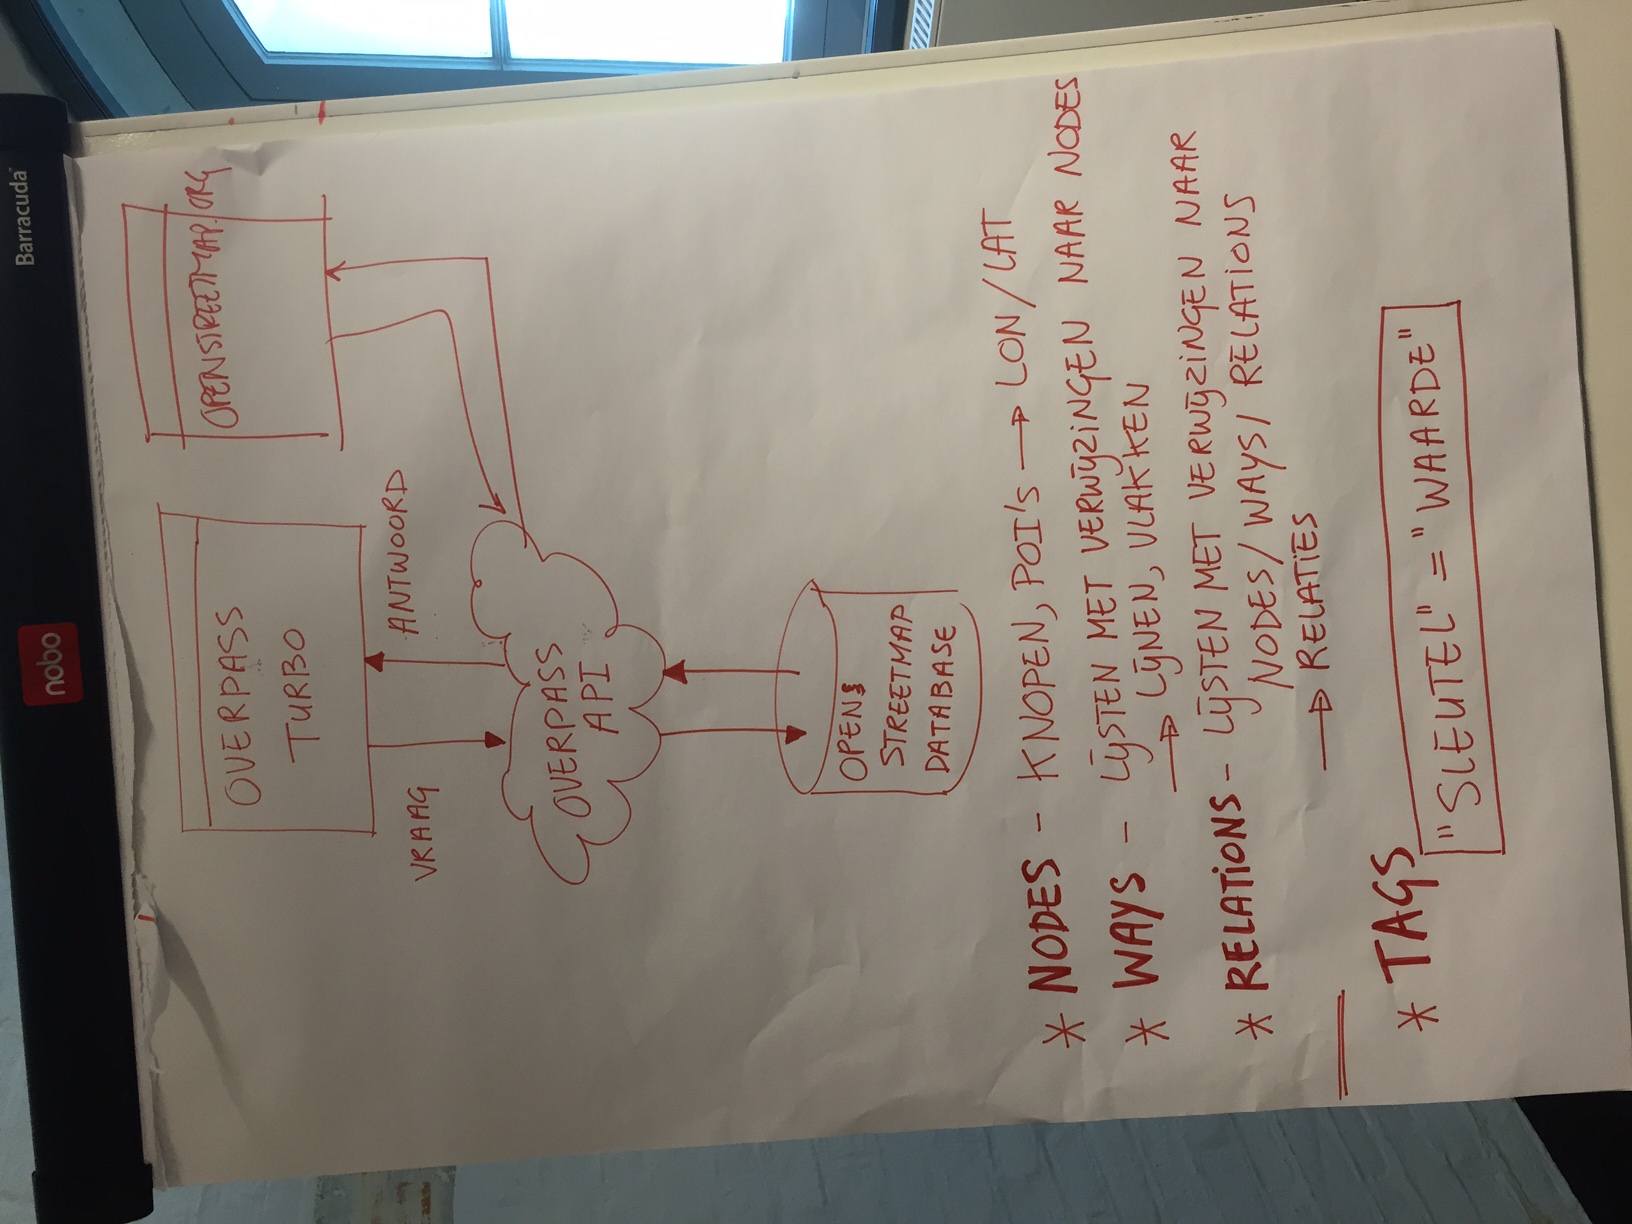 nobo
Barracuda
OVERPASS
TURBO
OPENSTREETMAP.ORG
VRAAG
ANTWOORD
OVERPASS
API
OPEN
STREETMAP
DATABASE
* NODES - KNOPEN, POI'S → LON/LAT
* WAYS - LIJSTEN MET VERWIJZINGEN NAAR NODES
→ LIJNEN, VLAKKEN
* RELATIONS - LIJSTEN MET VERWIJZINGEN NAAR
NODES/WAYS/RELATIONS
→ RELATIES
* TAGS
"SLEUTEL" = "WAARDE"